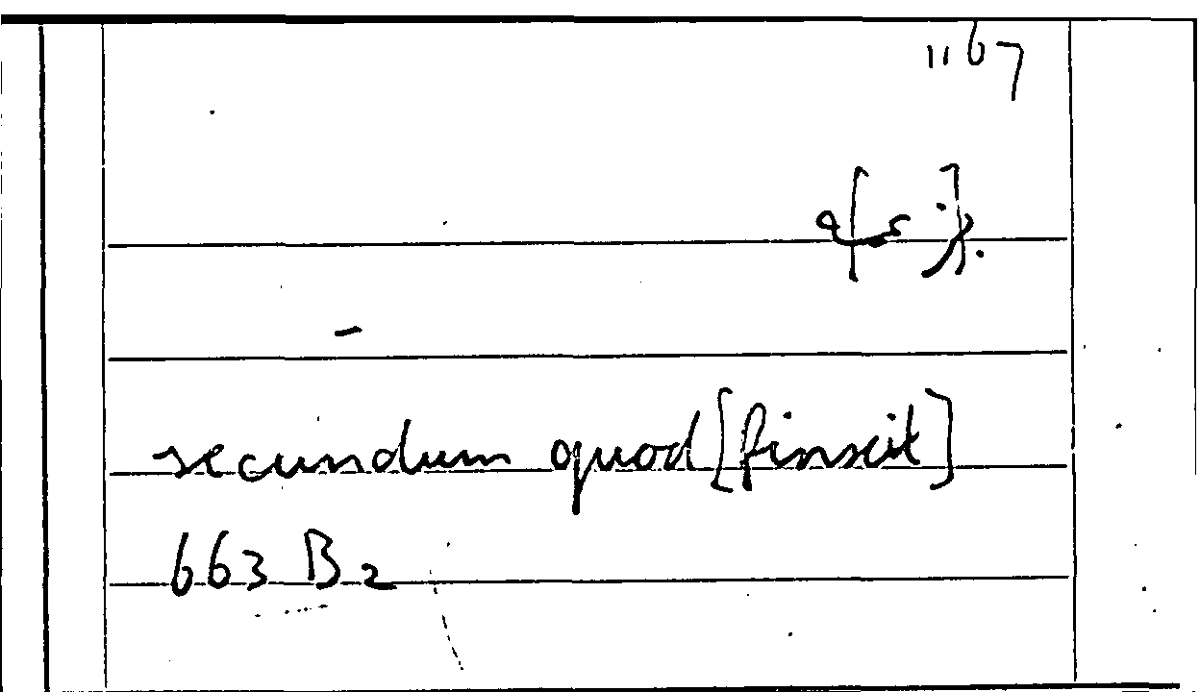 1167
secundum quod [finxit]
663 B2